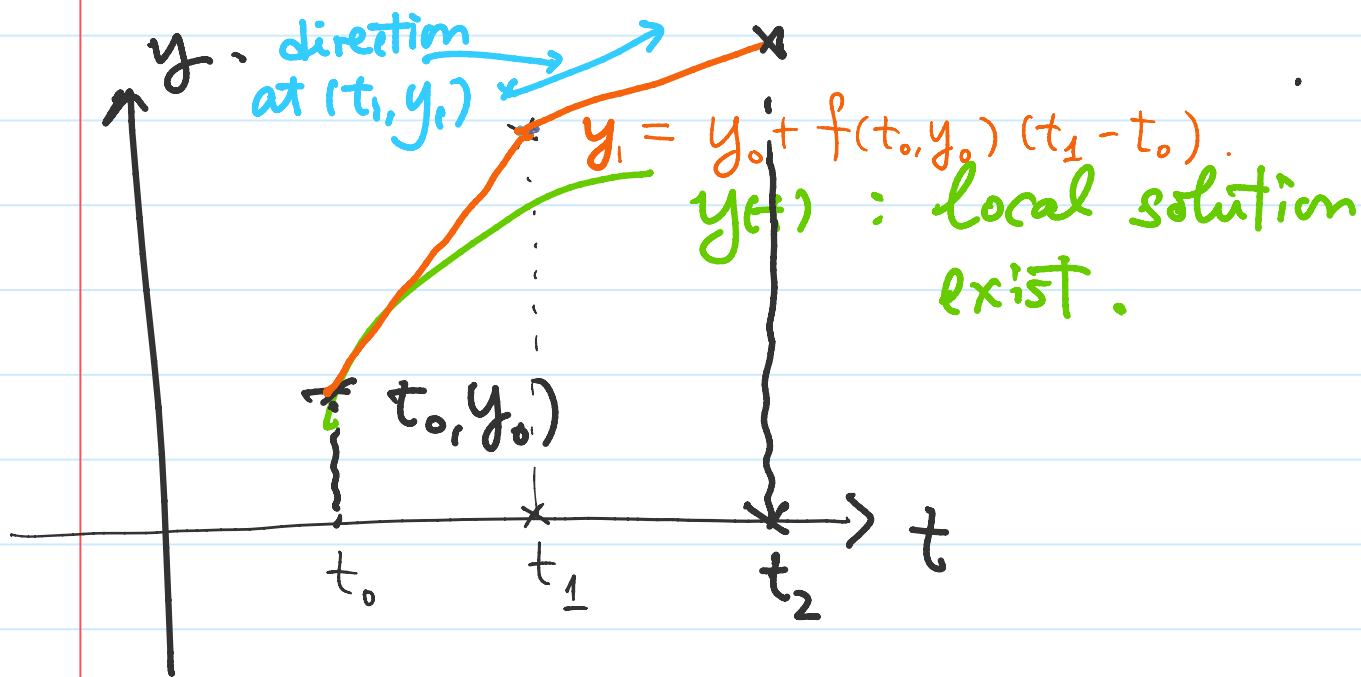 y. direction
at (t₁, y₁)
y₁ = y₀ + f(t₀, y₀) (t₁ - t₀).
y(t) : local solution
exist.
t₀, y₀)
t
t₀ t₁ t₂